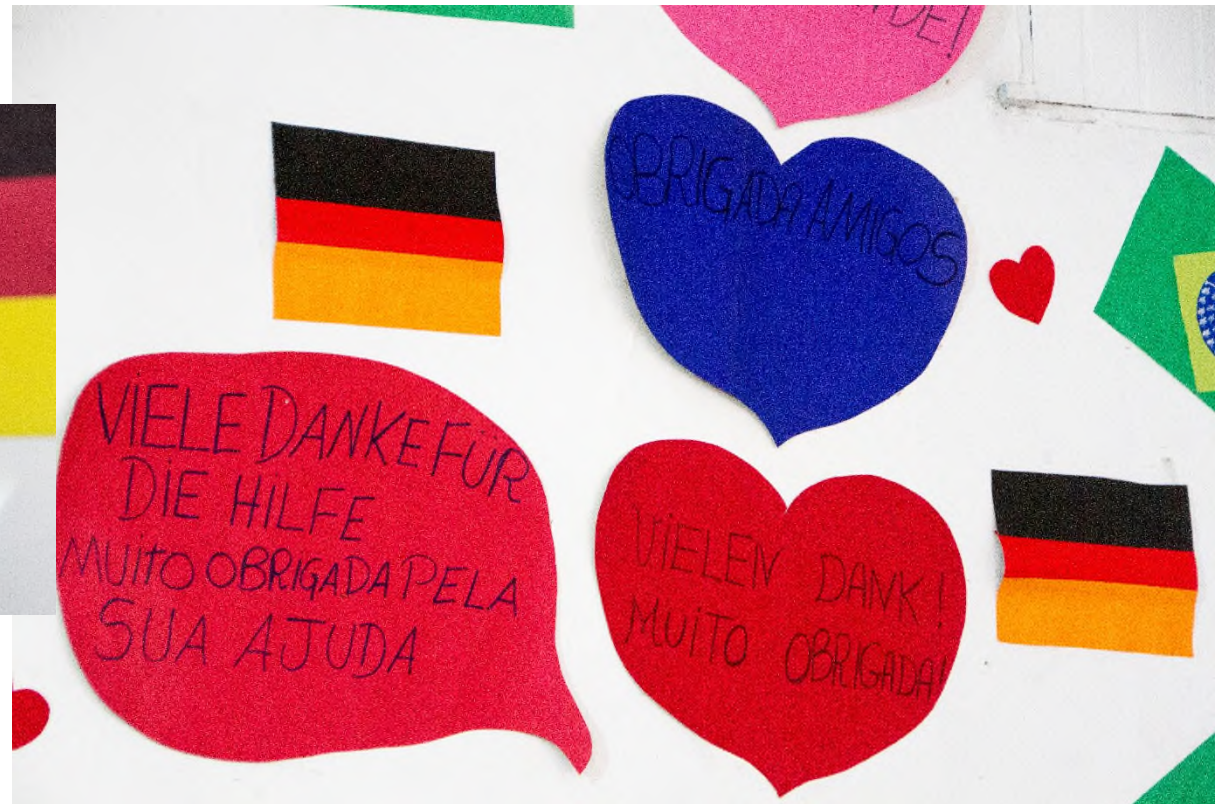 DE!
OBRIGADA AMIGOS
VIELE DANKE FÜR
DIE HILFE
MUITO OBRIGADA PELA
SUA AJUDA
VIELEN DANK!
MUITO OBRIGADA!